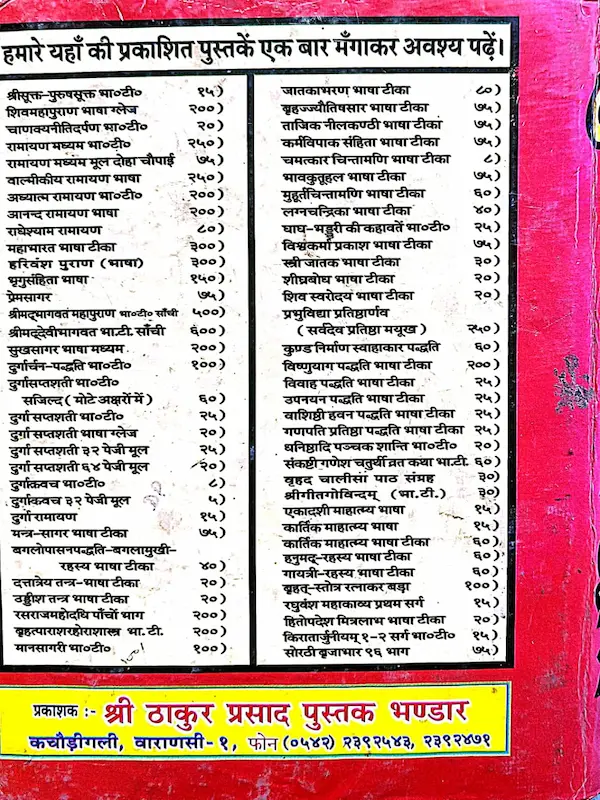 हमारे यहाँ की प्रकाशित पुस्तकें एक बार मँगाकर अवश्य पढ़ें।
श्रीसूक्त-पुरुषसूक्त भा०टी० १५)
शिवमहापुराण भाषा ग्लेज २००)
चाणक्यनीतिदर्पण भा०टी० २०)
रामायण मध्यम भा०टी० २५०)
रामायण मध्यम मूल दोहा चौपाई ७५)
वाल्मीकीय रामायण भाषा २५०)
अध्यात्म रामायण भा०टी० २००)
आनन्द रामायण भाषा २००)
राधेश्याम रामायण ८०)
महाभारत भाषा टीका ३००)
हरिवंश पुराण (भाषा) ३००)
भृगुसंहिता भाषा १५०)
प्रेमसागर ७५)
श्रीमद्भागवत महापुराण भा०टी० साँची ५००)
श्रीमद्देवीभागवत भा.टी. साँची ६००)
सुखसागर भाषा मध्यम २००)
दुर्गार्चन-पद्धति भा०टी० १००)
दुर्गासप्तशती भा०टी०
सजिल्द (मोटे अक्षरों में) ६०)
दुर्गा सप्तशती भा०टी० २५)
दुर्गा सप्तशती भाषा ग्लेज २०)
दुर्गा सप्तशती ३२ पेजी मूल २५)
दुर्गा सप्तशती ६४ पेजी मूल २०)
दुर्गाकवच भा०टी० ८)
दुर्गाकवच ३२ पेजी मूल ५)
दुर्गा रामायण १५)
मन्त्र-सागर भाषा टीका ७५)
बगलोपासनपद्धति-बगलामुखी-
रहस्य भाषा टीका ४०)
दत्तात्रेय तन्त्र-भाषा टीका २०)
उड्डीश तन्त्र भाषा टीका २०)
रसराजमहोदधि पाँचों भाग २००)
बृहत्पाराशरहोराशास्त्र भा.टी. २००)
मानसागरी भा०टी० १००)
जातकाभरण भाषा टीका ८०)
बृहज्ज्यौतिषसार भाषा टीका ७५)
ताजिक नीलकण्ठी भाषा टीका ७५)
कर्मविपाक संहिता भाषा टीका ७५)
चमत्कार चिन्तामणि भाषा टीका ८)
भावकुतूहल भाषा टीका ७५)
मुहूर्तचिन्तामणि भाषा टीका ६०)
लग्नचन्द्रिका भाषा टीका ४०)
घाघ-भड्डरी की कहावतें भा०टी० २५)
विश्वकर्मा प्रकाश भाषा टीका ७५)
स्त्री जातक भाषा टीका ३०)
शीघ्रबोध भाषा टीका २०)
शिव स्वरोदय भाषा टीका २०)
प्रभुविद्या प्रतिष्ठार्णव
(सर्वदेव प्रतिष्ठा मयूख) २५०)
कुण्ड निर्माण स्वाहाकार पद्धति ६०)
विष्णुयाग पद्धति भाषा टीका २००)
विवाह पद्धति भाषा टीका २५)
उपनयन पद्धति भाषा टीका २५)
वाशिष्ठी हवन पद्धति भाषा टीका २५)
गणपति प्रतिष्ठा पद्धति भाषा टीका २५)
धनिष्ठादि पञ्चक शान्ति भा०टी० २०)
संकष्टी गणेश चतुर्थी व्रत कथा भा.टी. ६०)
बृहद चालीसा पाठ संग्रह ३०)
श्रीगीतगोविन्दम् (भा.टी.) ३०)
एकादशी माहात्म्य भाषा १५)
कार्तिक माहात्म्य भाषा १५)
कार्तिक माहात्म्य भाषा टीका ६०)
हनुमद्-रहस्य भाषा टीका ६०)
गायत्री-रहस्य भाषा टीका ६०)
बृहत्-स्तोत्र रत्नाकर बड़ा १००)
रघुवंश महाकाव्य प्रथम सर्ग १५)
हितोपदेश मित्रलाभ भाषा टीका २०)
किरातार्जुनीयम् १-२ सर्ग भा०टी० १५)
सोरठी बृजाभार १६ भाग ७५)
प्रकाशक :- श्री ठाकुर प्रसाद पुस्तक भण्डार
कचौड़ीगली, वाराणसी-१, फोन (०५४२) २३९२५४३, २३९२४७१